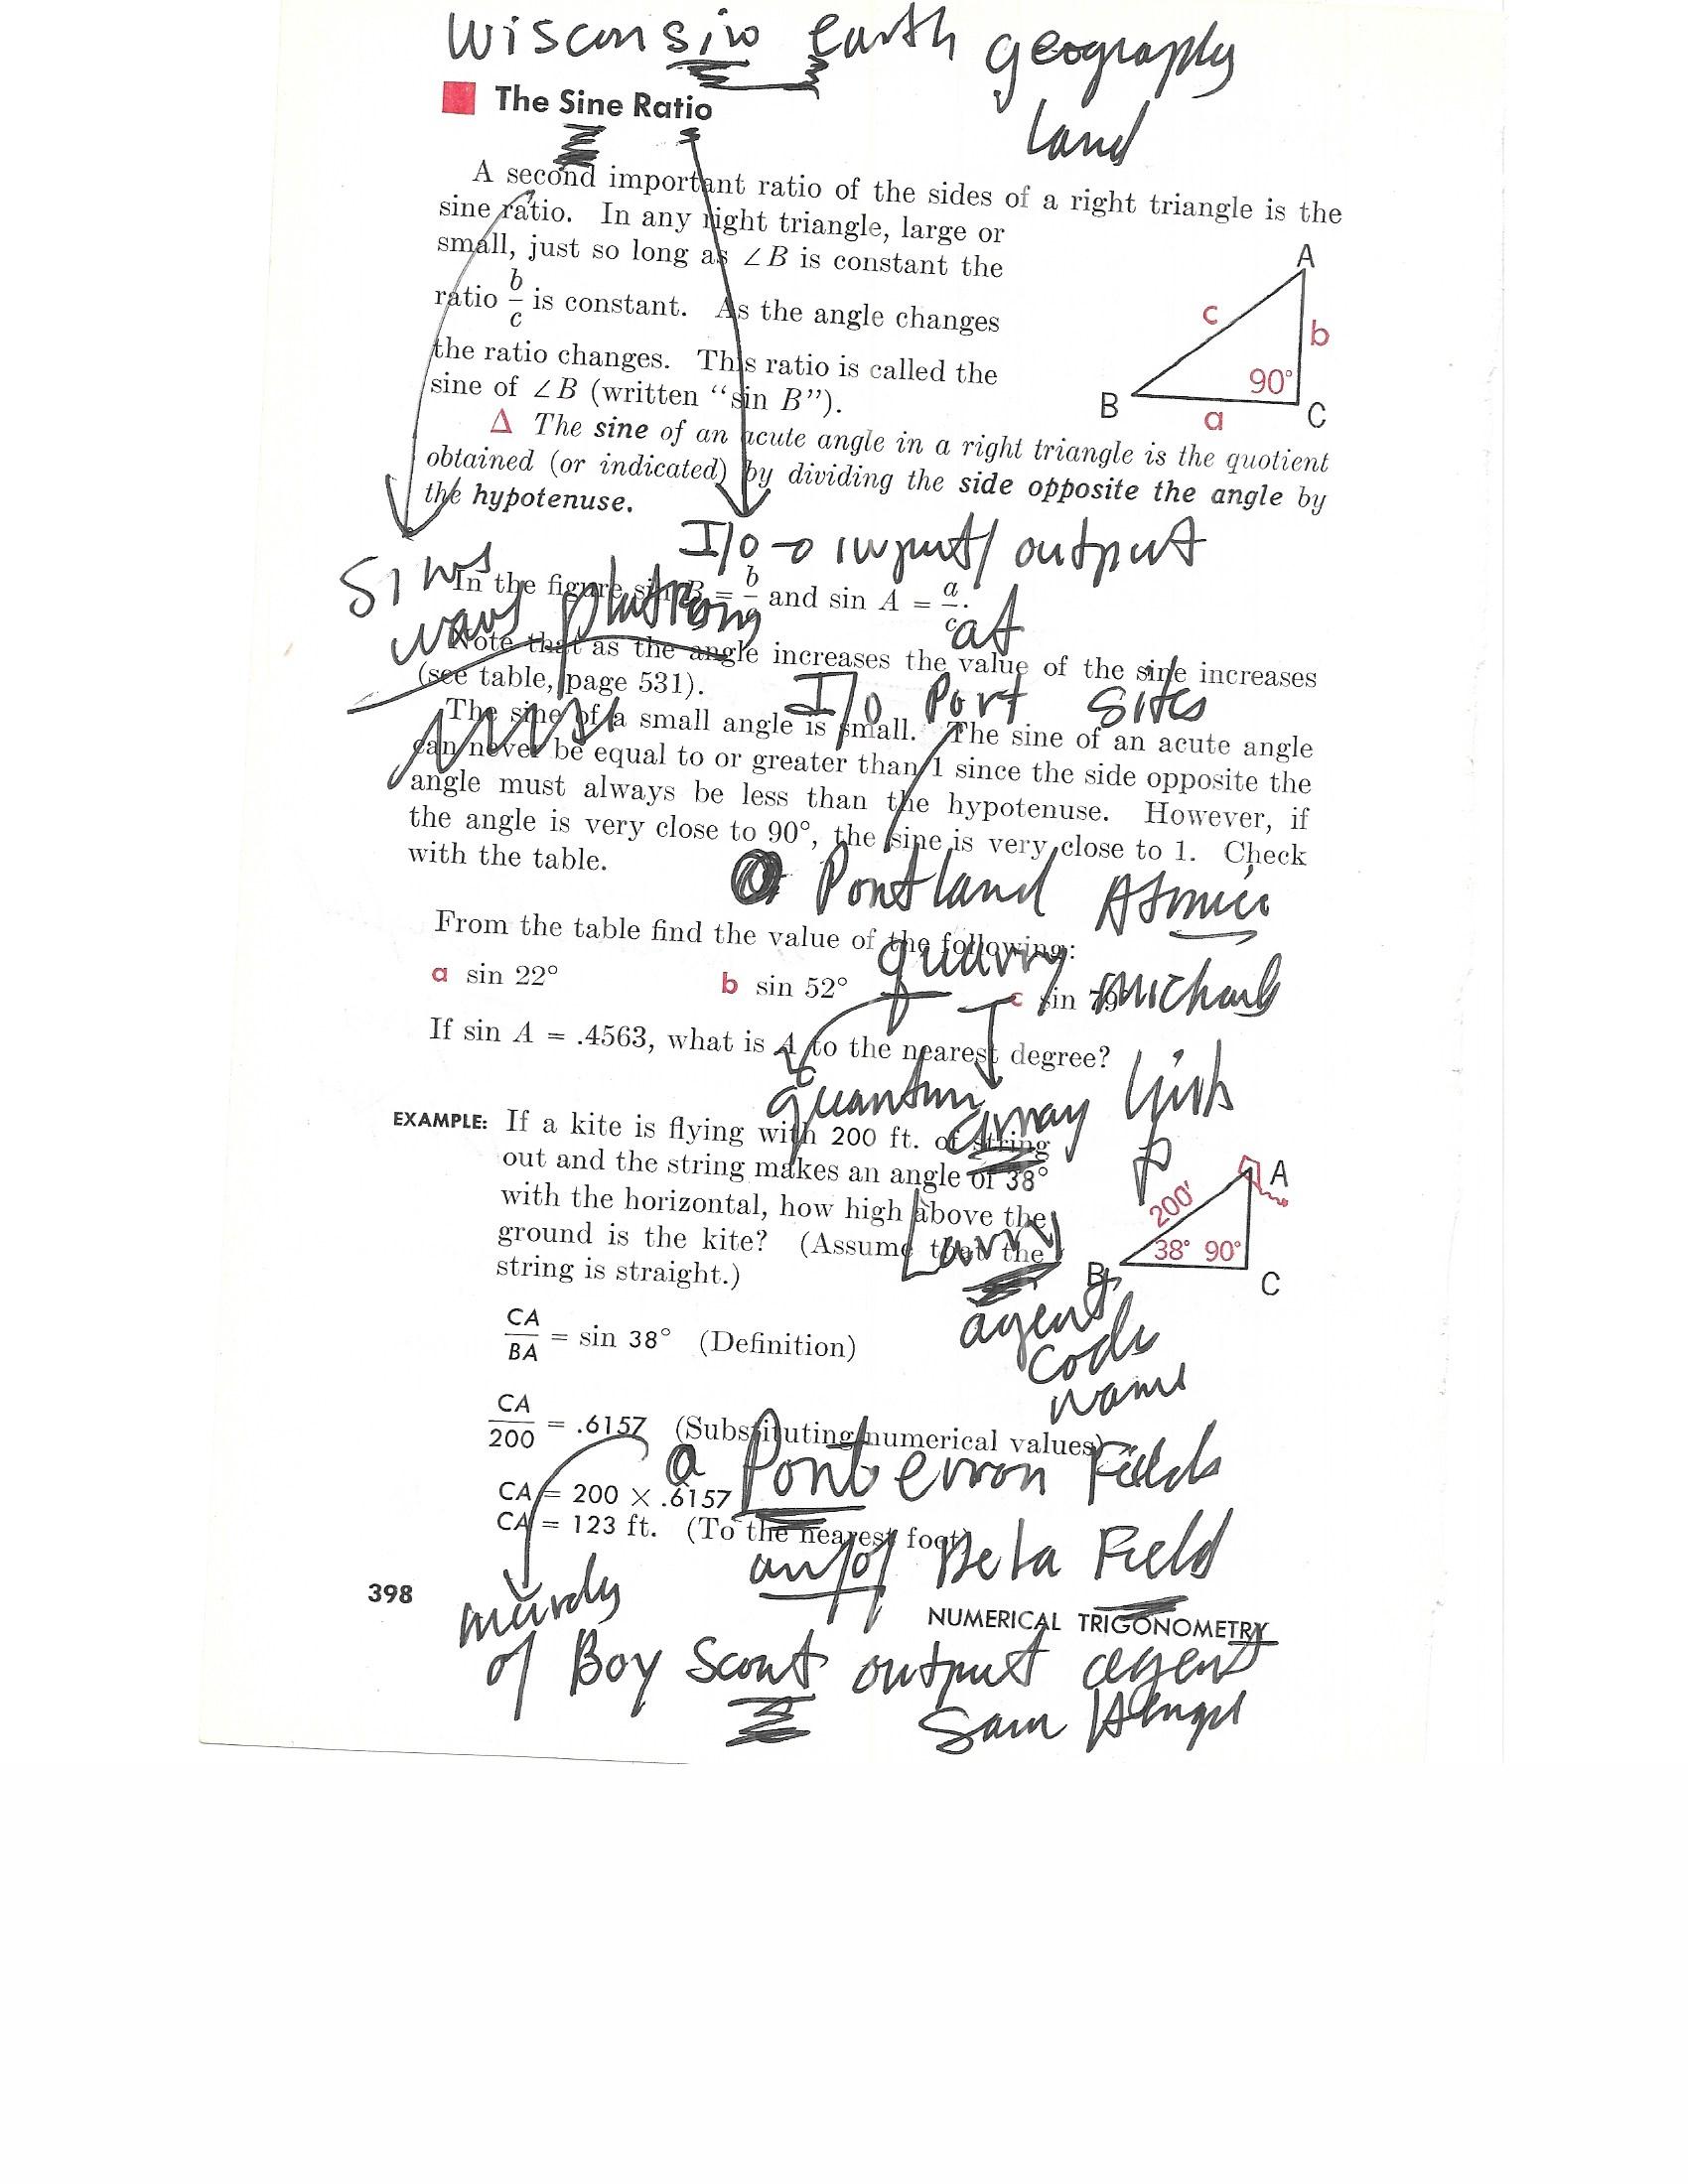 Wisconsin earth geography
land
The Sine Ratio
A second important ratio of the sides of a right triangle is the
sine ratio. In any right triangle, large or
small, just so long as ∠B is constant the
ratio b/c is constant. As the angle changes
the ratio changes. This ratio is called the
sine of ∠B (written “sin B”).
A
c
b
90°
B
a
C
Δ The sine of an acute angle in a right triangle is the quotient
obtained (or indicated) by dividing the side opposite the angle by
the hypotenuse.
I/O → input/output
In the figure sin B = b/c and sin A = a/c.
at
Note that as the angle increases the value of the sine increases
(see table, page 531).
I/O Port Sites
The sine of a small angle is small. The sine of an acute angle
can never be equal to or greater than 1 since the side opposite the
angle must always be less than the hypotenuse. However, if
the angle is very close to 90°, the sine is very close to 1. Check
with the table.
Portland Atomic
From the table find the value of the following:
quarry
a sin 22° b sin 52° c sin 79°
If sin A = .4563, what is A to the nearest degree?
quantum
array
EXAMPLE: If a kite is flying with 200 ft. of string
out and the string makes an angle of 38°
with the horizontal, how high above the
ground is the kite? (Assume that the
string is straight.)
Larry
A
200'
38° 90°
B
C
agent
code
name
CA/BA = sin 38° (Definition)
CA/200 = .6157 (Substituting numerical values)
CA = 200 × .6157
CA = 123 ft. (To the nearest foot)
Beta Field
398
NUMERICAL TRIGONOMETRY
of Boy Scout output agent
Sam